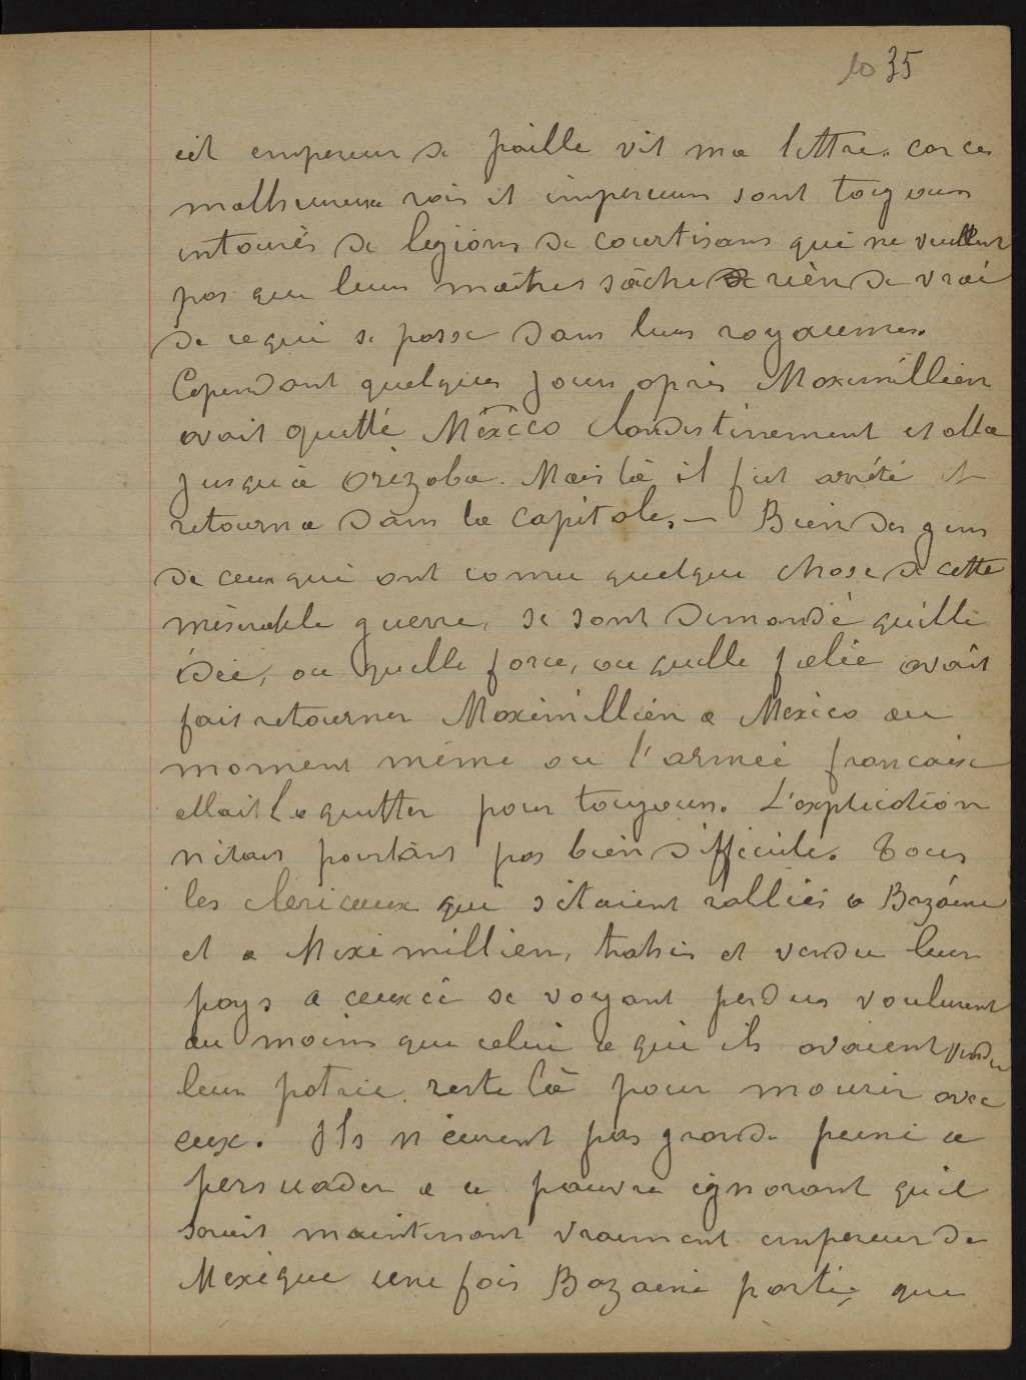 10 35
cet empereur de paille vit ma lettre. car ces
malheureux rois et empereurs sont toujours
entourés de legions de courtisans qui ne veulent
pas que leurs maitres sache rien de vrai
de ce qui se passe dans leurs royaumes.
Cependant quelques jours après Maximillien
avait quitté Mexico clandestinement et alla
jusqu'a Orizaba. Mais là il fut arrété et
retourna dans la capitale. — Bien des gens
de ceux qui ont connu quelque chose de cette
miserable guerre, se sont demandé quelle
idée, ou quelle force, ou quelle folie avait
fait retourner Maximillien a Mexico au
moment même ou l'armée francaise
allait la quitter pour toujours. L'explication
n'etait pourtant pas bien difficile. Tous
les clericaux qui s'etaient ralliés a Bazaine
et a Meximillien, trahis et vendu leur
pays a ceux ci se voyant perdus voulurent
au moins que celui a qui ils avaient vendu
leur patrie, reste là pour mourir avec
eux. Ils n'eurent pas grande peine a
persuader a ce pauvre ignorant qu'il
serait maintenant vraiment empereur de
Mexique une fois Bazaine partie, que